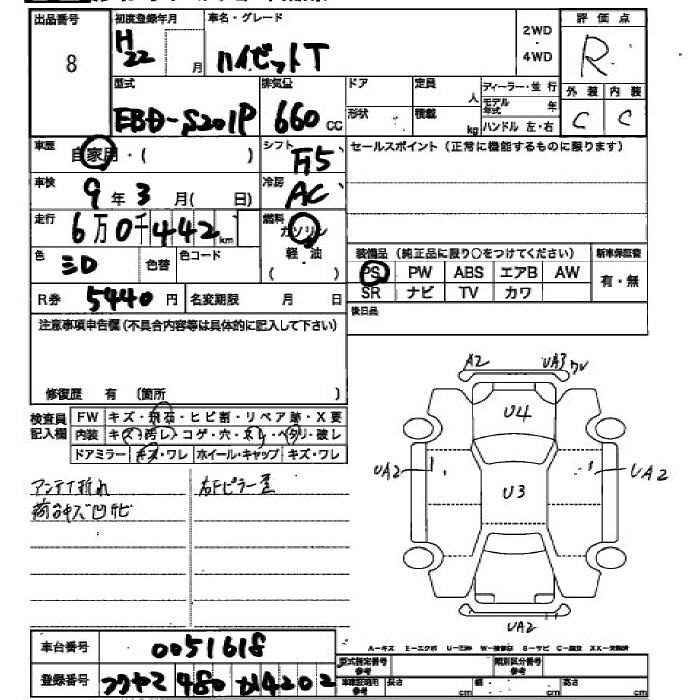 出品番号 8
初度登録年月 H22 月
車名・グレード ハイゼットT
2WD・4WD
評価点 R
外装 C 内装 C
型式 EBD-S201P
排気量 660 cc
ドア 形状
定員 人 積載 kg
ディーラー・並行
モデル年式 年
ハンドル 左・右
車歴 自家用・( )
シフト F5
セールスポイント(正常に機能するものに限ります)
車検 9年3月( 日)
冷房 AC
走行 6万0千442km
燃料 ガソリン 軽・油 ( )
色 シロ 色替 色コード
装備品(純正品に限り○をつけてください) 新車保証書
PS PW ABS エアB AW 有・無
SR ナビ TV カワ
R券 5440円 名変期限 月 日
後日品
注意事項申告欄(不具合内容等は具体的に記入して下さい)
修復歴 有 〔箇所 〕
検査員記入欄
FW キズ・飛石・ヒビ割・リペア跡・X要
内装 キズ・汚レ・コゲ・穴・スレ・ヘタリ・破レ
ドアミラー キズ・ワレ ホイール・キャップ キズ・ワレ
アンテナ折れ
荷台キズ凹サビ
右Fピラー歪
A2 UA3 ワレ
U4
UA2 U3 UA2
UA2
車台番号 0051618
登録番号 フクヤマ 480 4202
A-キズ E-エクボ U-凹 W-補修跡 S-サビ C-腐食 XX-交換済
型式指定番号 参考 類別区分番号 参考
車庫証明用 参考 長さ cm 幅 cm 高さ cm